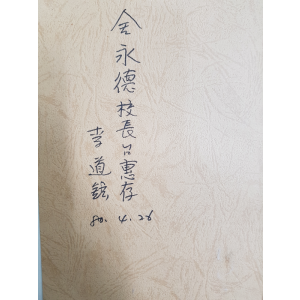 金永德校長님惠存
李道鎔
80. 4. 26